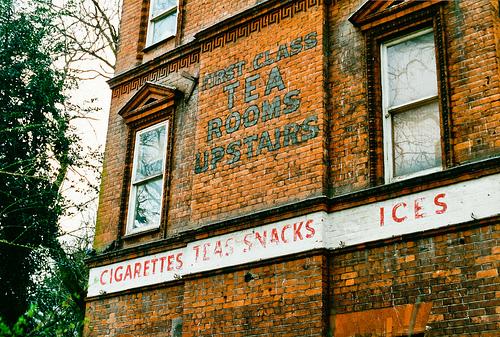 FIRST CLASS
TEA
ROOMS
UPSTAIRS
CIGARETTES TEAS SNACKS ICES